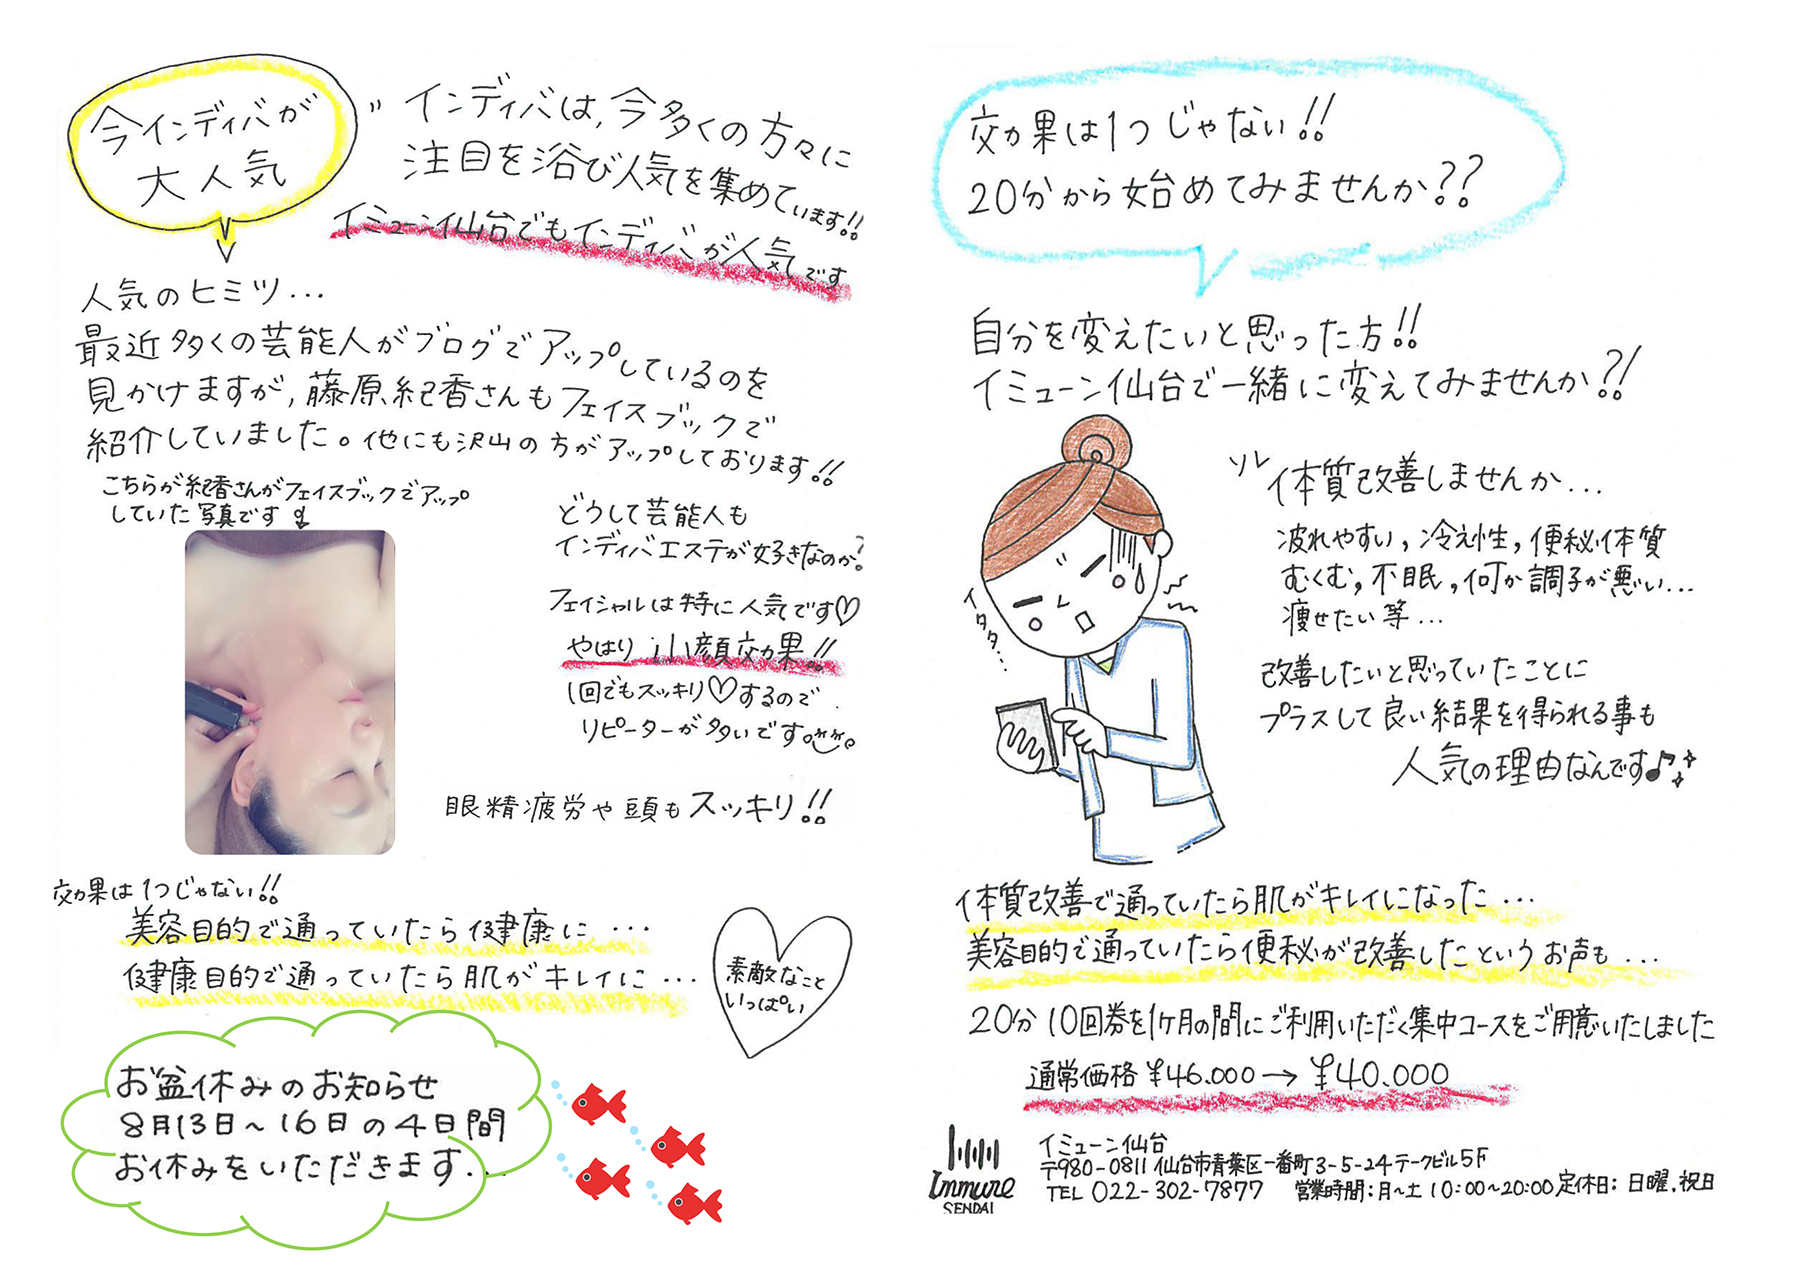 今インディバが
大人気
インディバは,今多くの方々に
注目を浴び人気を集めています!!
イミューン仙台でもインディバが人気です
人気のヒミツ…
最近多くの芸能人がブログでアップしているのを
見かけますが,藤原紀香さんもフェイスブックで
紹介していました。他にも沢山の方がアップしております!!
こちらが紀香さんがフェイスブックでアップ
していた写真です
どうして芸能人も
インディバエステが好きなのか?
フェイシャルは特に人気です♡
やはり小顔効果!!
1回でもスッキリ♡するので
リピーターが多いです
眼精疲労や頭もスッキリ!!
効果は1つじゃない!!
美容目的で通っていたら健康に…
健康目的で通っていたら肌がキレイに…
素敵なこと
いっぱい
お盆休みのお知らせ
8月13日~16日の4日間
お休みをいただきます…
効果は1つじゃない!!
20分から始めてみませんか??
自分を変えたいと思った方!!
イミューン仙台で一緒に変えてみませんか?!
ソレ体質改善しませんか…
疲れやすい,冷え性,便秘体質
むくむ,不眠,何か調子が悪い…
痩せたい等…
イタタタ…
改善したいと思っていたことに
プラスして良い結果を得られる事も
人気の理由なんです♪
体質改善で通っていたら肌がキレイになった…
美容目的で通っていたら便秘が改善したというお声も…
20分10回券を1ヶ月の間にご利用いただく集中コースをご用意いたしました
通常価格¥46.000→¥40.000
Immune
SENDAI
イミューン仙台
〒980-0811仙台市青葉区一番町3-5-24テークビル5F
TEL 022-302-7877 営業時間:月~土10:00~20:00定休日:日曜,祝日